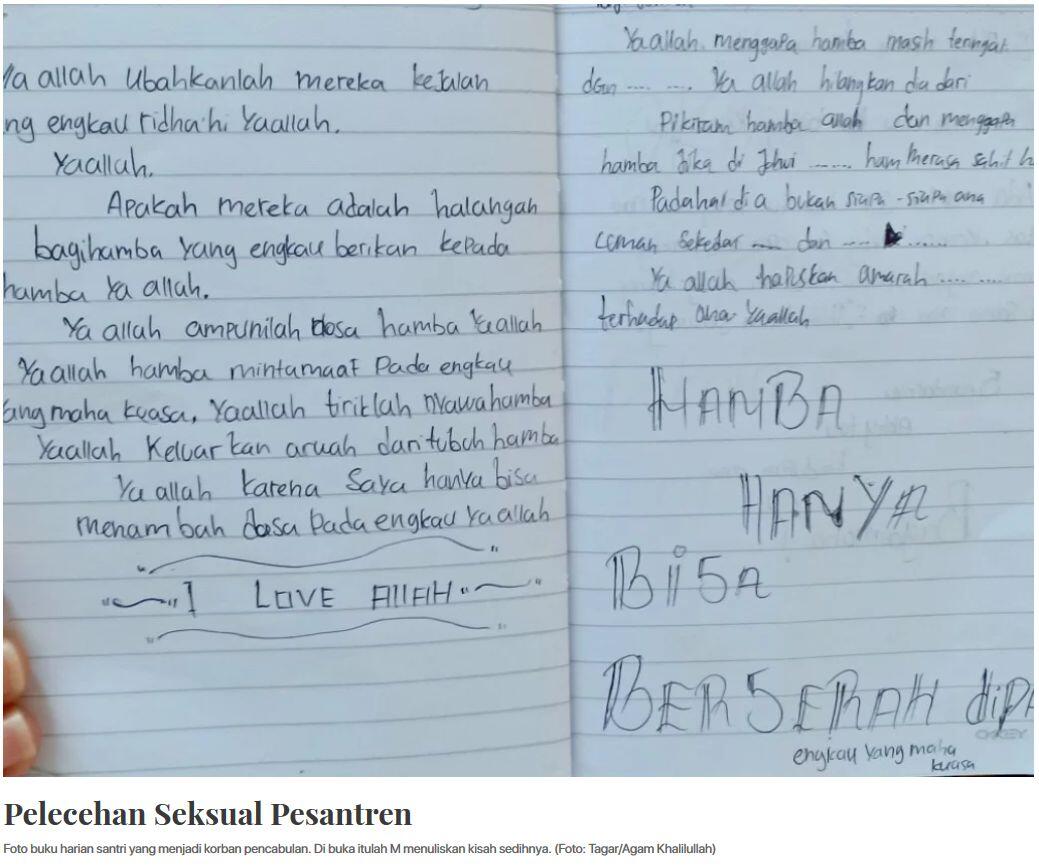 Ya allah Ubahkanlah mereka kejalan
ng engkau ridhai'hi Yaallah.
Yaallah.
Apakah mereka adalah halangan
bagihamba Yang engkau berikan kepada
hamba Ya allah.
Ya allah ampunilah dosa hamba Yaallah
Yaallah hamba mintamaaf Pada engkau
ang maha kuasa, Yaallah tiriklah nyawahamba
Yaallah Keluarkan aruah daritubuh hamba
Ya allah karena Saya hanya bisa
menambah dosa Pada engkau Yaallah
I LOVE AllAH
Yaallah, menggapa hamba mash teringat
dgn ..... ..... Ya allah hilangkan dia dari
Pikiram hamba allah dan menggapa
hamba jika di Jhwi ...... ham merasa sakit h
Padahal dia bukan siapa-siapa ana
cuman sekedar ..... dan ..... ......
Ya allah hapiskan amarah ..... .....
terhadap ana Yaallah
HAMBA
HANYA
BiSA
BERSERAH diPA
engkau yang maha
kuasa
Pelecehan Seksual Pesantren
Foto buku harian santri yang menjadi korban pencabulan. Di buka itulah M menuliskan kisah sedihnya. (Foto: Tagar/Agam Khalilullah)